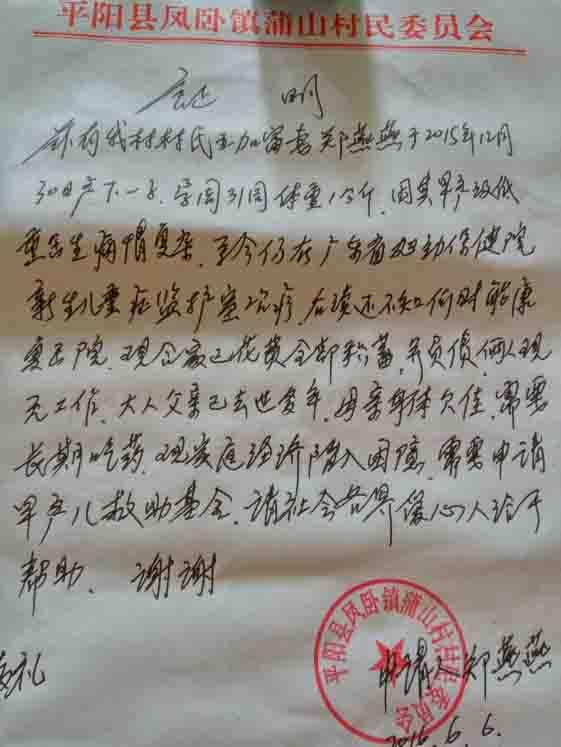 平阳县凤卧镇蒲山村民委员会
证 明
兹有我村村民王加富妻郑燕燕于2015年12月
30日产下一子,孕周31周体重1公斤,因其早产极低
重出生病情复杂,至今仍在广东省妇幼保健院
新生儿重症监护室治疗,后续还不知何时能康
复出院,现全家已花费全部积蓄,并负债,俩人现
无工作,大人父亲已去世多年,母亲身体欠佳,需要
长期吃药,现家庭经济陷入困境,需要申请
早产儿救助基金,请社会各界爱心人给予
帮助、谢谢
礼
申请人郑燕燕
2016.6.6.
平阳县凤卧镇蒲山村村民委员会